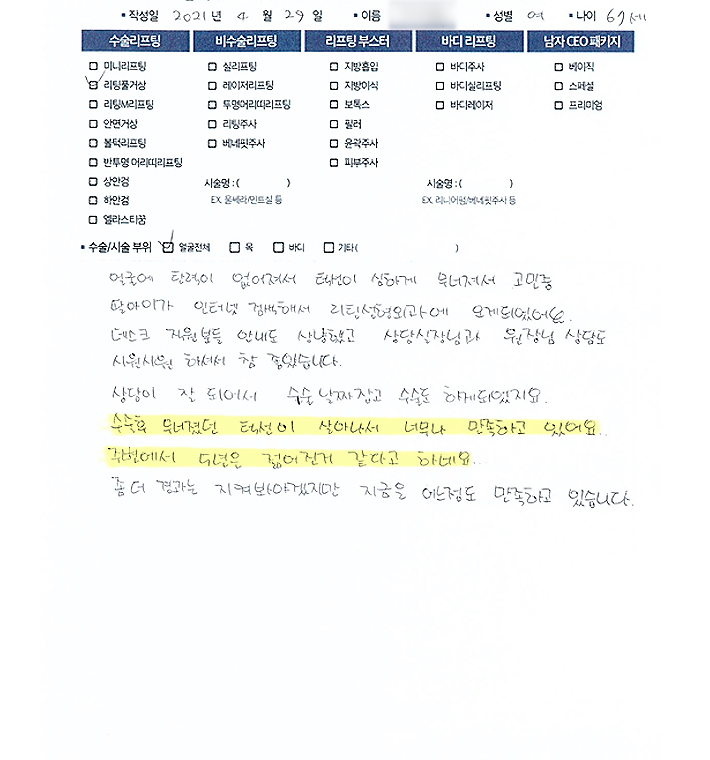 ▪ 작성일 2021년 4월 29일 ▪ 이름 ▪ 성별 여 ▪ 나이 67세
수술리프팅 비수술리프팅 리프팅 부스터 바디 리프팅 남자 CEO 패키지
미니리프팅 실리프팅 지방흡입 바디주사 베이직
리팅풀거상 레이저리프팅 지방이식 바디실리프팅 스페셜
리팅M리프팅 투명머리띠리프팅 보톡스 바디레이저 프리미엄
안면거상 리팅주사 필러
볼턱리프팅 베네핏주사 윤곽주사
반투명 머리띠리프팅 피부주사
상안검 시술명 : ( ) 시술명 : ( )
하안검 EX. 울쎄라/민트실 등 EX. 리니어펌/베네핏주사 등
엘라스티꿈
▪ 수술/시술 부위 얼굴전체 목 바디 기타( )
얼굴에 탄력이 없어져서 턱선이 심하게 무너져서 고민중
딸아이가 인터넷 검색해서 리팅성형외과에 오게되었어요.
데스크 직원분들 안내도 상냥했고 상담실장님과 원장님 상담도
시원시원 하셔서 참 좋았습니다.
상담이 잘 되어서 수술 날짜잡고 수술도 하게되었지요.
수술후 무너졌던 턱선이 살아나서 너무나 만족하고 있어요..
주변에서 5년은 젊어진거 같다고 하네요..
좀 더 경과는 지켜봐야겠지만 지금은 어느정도 만족하고 있습니다.